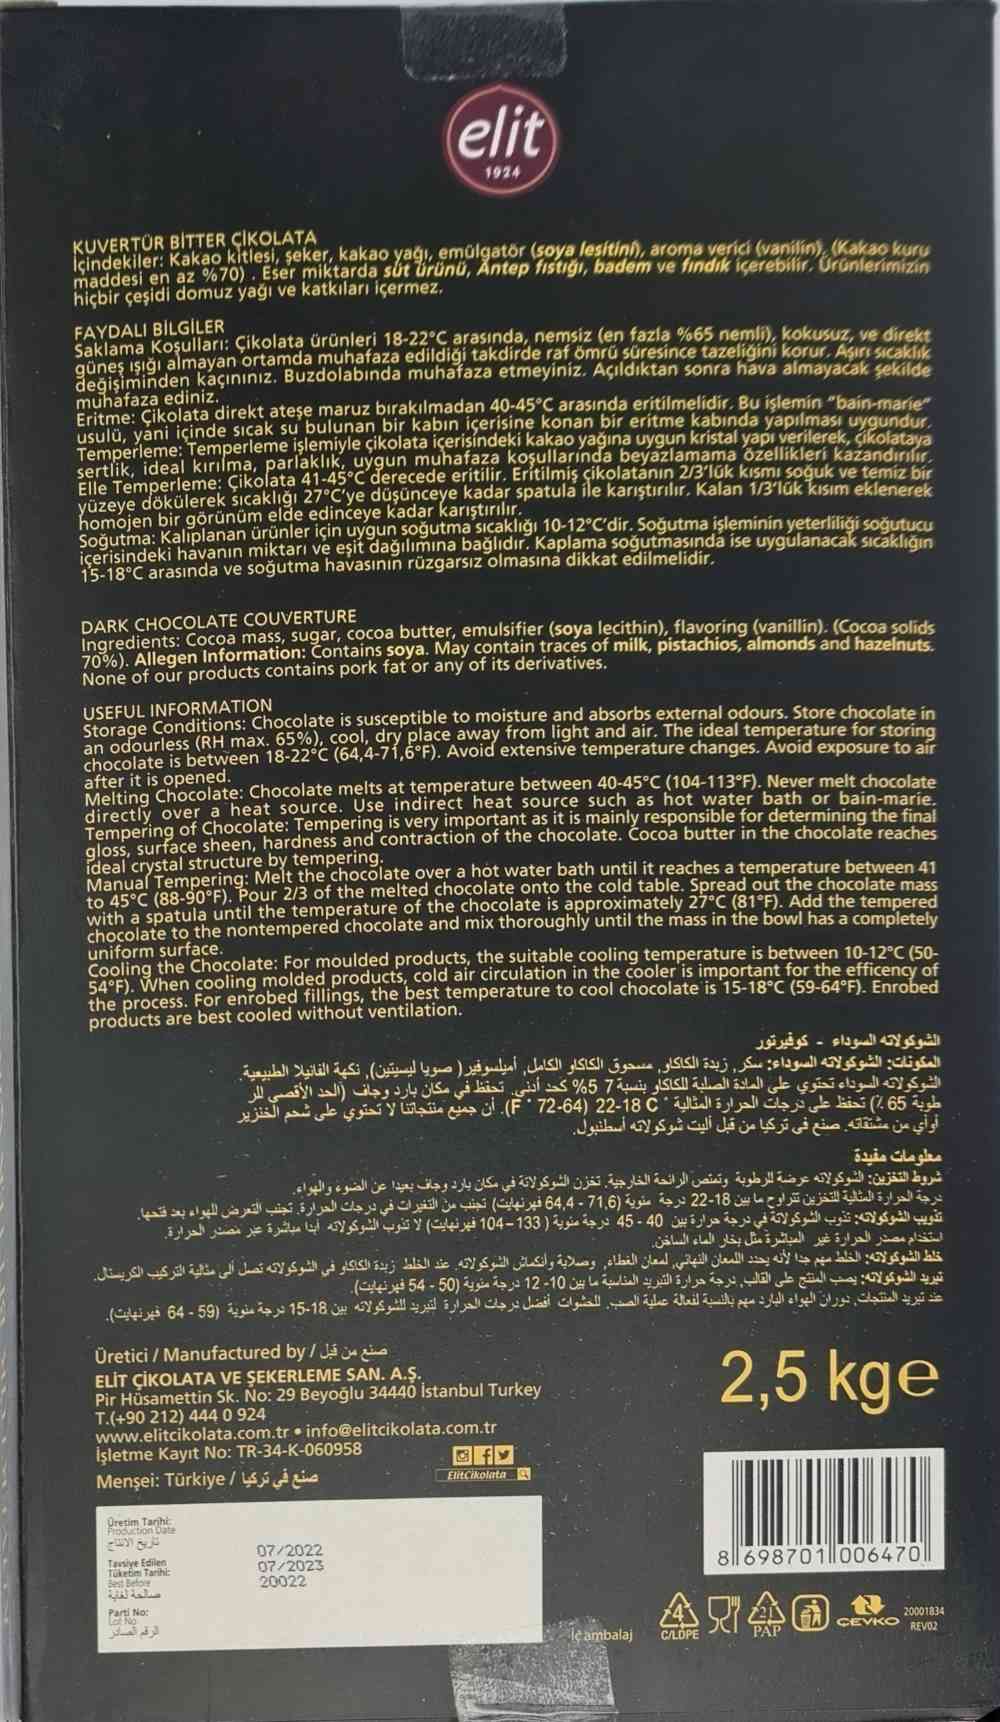 elit
1924
KUVERTÜR BİTTER ÇİKOLATA
İçindekiler: Kakao kitlesi, şeker, kakao yağı, emülgatör (soya lesitini), aroma verici (vanilin), (Kakao kuru
maddesi en az %70) . Eser miktarda süt ürünü, Antep fıstığı, badem ve fındık içerebilir. Ürünlerimizin
hiçbir çeşidi domuz yağı ve katkıları içermez.
FAYDALI BİLGİLER
Saklama Koşulları: Çikolata ürünleri 18-22°C arasında, nemsiz (en fazla %65 nemli), kokusuz, ve direkt
güneş ışığı almayan ortamda muhafaza edildiği takdirde raf ömrü süresince tazeliğini korur. Aşırı sıcaklık
değişiminden kaçınınız. Buzdolabında muhafaza etmeyiniz. Açıldıktan sonra hava almayacak şekilde
muhafaza ediniz.
Eritme: Çikolata direkt ateşe maruz bırakılmadan 40-45°C arasında eritilmelidir. Bu işlemin "bain-marie"
usulü, yani içinde sıcak su bulunan bir kabın içerisine konan bir eritme kabında yapılması uygundur.
Temperleme: Temperleme işlemiyle çikolata içerisindeki kakao yağına uygun kristal yapı verilerek, çikolataya
sertlik, ideal kırılma, parlaklık, uygun muhafaza koşullarında beyazlamama özellikleri kazandırılır.
Elle Temperleme: Çikolata 41-45°C derecede eritilir. Eritilmiş çikolatanın 2/3'lük kısmı soğuk ve temiz bir
yüzeye dökülerek sıcaklığı 27°C'ye düşünceye kadar spatula ile karıştırılır. Kalan 1/3'lük kısım eklenerek
homojen bir görünüm elde edinceye kadar karıştırılır.
Soğutma: Kalıplanan ürünler için uygun soğutma sıcaklığı 10-12°C'dir. Soğutma işleminin yeterliliği soğutucu
içerisindeki havanın miktarı ve eşit dağılımına bağlıdır. Kaplama soğutmasında ise uygulanacak sıcaklığın
15-18°C arasında ve soğutma havasının rüzgarsız olmasına dikkat edilmelidir.
DARK CHOCOLATE COUVERTURE
Ingredients: Cocoa mass, sugar, cocoa butter, emulsifier (soya lecithin), flavoring (vanillin). (Cocoa solids
70%). Allegen Information: Contains soya. May contain traces of milk, pistachios, almonds and hazelnuts.
None of our products contains pork fat or any of its derivatives.
USEFUL INFORMATION
Storage Conditions: Chocolate is susceptible to moisture and absorbs external odours. Store chocolate in
an odourless (RH max. 65%), cool, dry place away from light and air. The ideal temperature for storing
chocolate is between 18-22°C (64,4-71,6°F). Avoid extensive temperature changes. Avoid exposure to air
after it is opened.
Melting Chocolate: Chocolate melts at temperature between 40-45°C (104-113°F). Never melt chocolate
directly over a heat source. Use indirect heat source such as hot water bath or bain-marie.
Tempering of Chocolate: Tempering is very important as it is mainly responsible for determining the final
gloss, surface sheen, hardness and contraction of the chocolate. Cocoa butter in the chocolate reaches
ideal crystal structure by tempering.
Manual Tempering: Melt the chocolate over a hot water bath until it reaches a temperature between 41
to 45°C (88-90°F). Pour 2/3 of the melted chocolate onto the cold table. Spread out the chocolate mass
with a spatula until the temperature of the chocolate is approximately 27°C (81°F). Add the tempered
chocolate to the nontempered chocolate and mix thoroughly until the mass in the bowl has a completely
uniform surface.
Cooling the Chocolate: For moulded products, the suitable cooling temperature is between 10-12°C (50-
54°F). When cooling molded products, cold air circulation in the cooler is important for the efficency of
the process. For enrobed fillings, the best temperature to cool chocolate is 15-18°C (59-64°F). Enrobed
products are best cooled without ventilation.
الشوكولاته السوداء - كوفيرتور
المكونات: الشوكولاته السوداء: سكر, زبدة الكاكاو, مسحوق الكاكاو الكامل, أميلسوفير( صويا ليسيتين), نكهة الفانيلا الطبيعية
الشوكولاته السوداء تحتوي على المادة الصلبة للكاكاو بنسبة 7 5% كحد أدنى. تحفظ في مكان بارد وجاف (الحد الأقصى للر
طوبة 65 ٪) تحفظ على درجات الحرارة المثالية 22-18 C ° (64-72 ° F). أن جميع منتجاتنا لا تحتوي على شحم الخنزير
أوأي من مشتقاته. صنع في تركيا من قبل أليت شوكولاته أسطنبول.
معلومات مفيدة
شروط التخزين: الشوكولاته عرضة للرطوبة وتمتص الرائحة الخارجية. تخزن الشوكولاتة في مكان بارد وجاف بعيدا عن الضوء والهواء.
درجة الحرارة المثالية للتخزين تتراوح ما بين 18-22 درجة مئوية (71,6 - 64,4 فهرنهايت) تجنب من التغيرات في درجات الحرارة. تجنب التعرض للهواء بعد فتحها.
تذويب الشوكولاته: تذوب الشوكولاتة في درجة حرارة بين 40 - 45 درجة مئوية ( 133 – 104 فهرنهايت) لا تذوب الشوكولاته أبدا مباشرة عبر مصدر الحرارة.
استخدام مصدر الحرارة غير المباشرة مثل بخار الماء الساخن.
خلط الشوكولاته: الخلط مهم جدا لأنه يحدد اللمعان النهائي, لمعان الغطاء, وصلابة وأنكماش الشوكولاته. عند الخلط زبدة الكاكاو في الشوكولاته تصل ألى مثالية التركيب الكريستال.
تبريد الشوكولاته: يصب المنتج على القالب, درجة حرارة التبريد المناسبة ما بين 10- 12 درجة مئوية (50 - 54 فهرنهايت).
عند تبريد المنتجات, دوران الهواء البارد مهم بالنسبة لفعالة عملية الصب. للحشوات أفضل درجات الحرارة لتبريد للشوكولاته بين 18-15 درجة مئوية (59 - 64 فهرنهايت).
Üretici / Manufactured by / صنع من قبل
ELİT ÇİKOLATA VE ŞEKERLEME SAN. A.Ş.
Pir Hüsamettin Sk. No: 29 Beyoğlu 34440 İstanbul Turkey
T.(+90 212) 444 0 924
www.elitcikolata.com.tr • info@elitcikolata.com.tr
İşletme Kayıt No: TR-34-K-060958
Menşei: Türkiye / صنع في تركيا
ElitCikolata
2,5 kg e
Üretim Tarihi:
Production Date
تاريخ الانتاج
07/2022
Tavsiye Edilen
Tüketim Tarihi:
Best Before
صالحة لغاية
07/2023
Parti No:
Lot No
الرقم الصادر
20022
8 698701 006470
İç ambalaj
4
C/LDPE
21
PAP
ÇEVKO
20001834
REV02